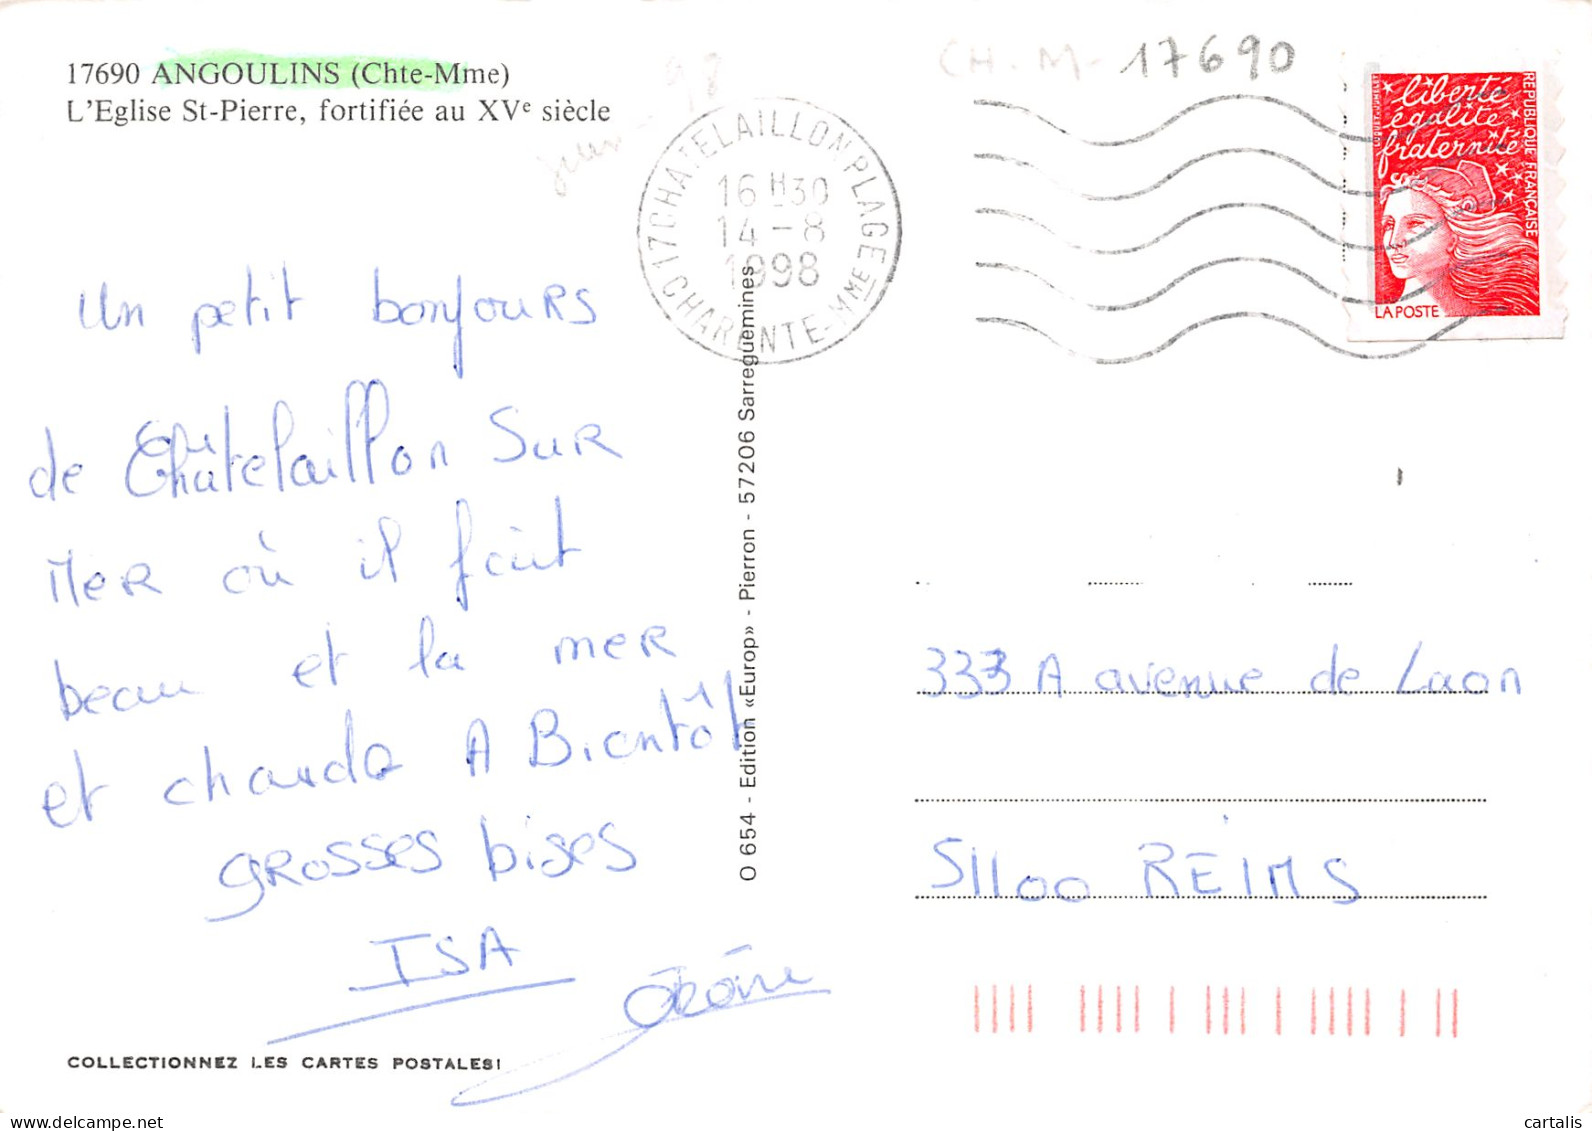 17690 ANGOULINS (Chte-Mme)
L'Eglise St-Pierre, fortifiée au XVe siècle
98
CH. M- 17690
17 CHATELAILLON PLAGE
CHARENTE-MME
16 H30
14-8
1998
liberté
égalité
fraternité
REPUBLIQUE FRANÇAISE
LA POSTE
un petit bonjours
de Châtelaillon SUR
MER où il fait
beau et la mer
et chaude A Bientôt
GROSSES bises
ISA
Jérôme
O 654 - Edition «Europ» - Pierron - 57206 Sarreguemines
333 A avenue de Laon
51100 REIMS
COLLECTIONNEZ LES CARTES POSTALES!
cartalis